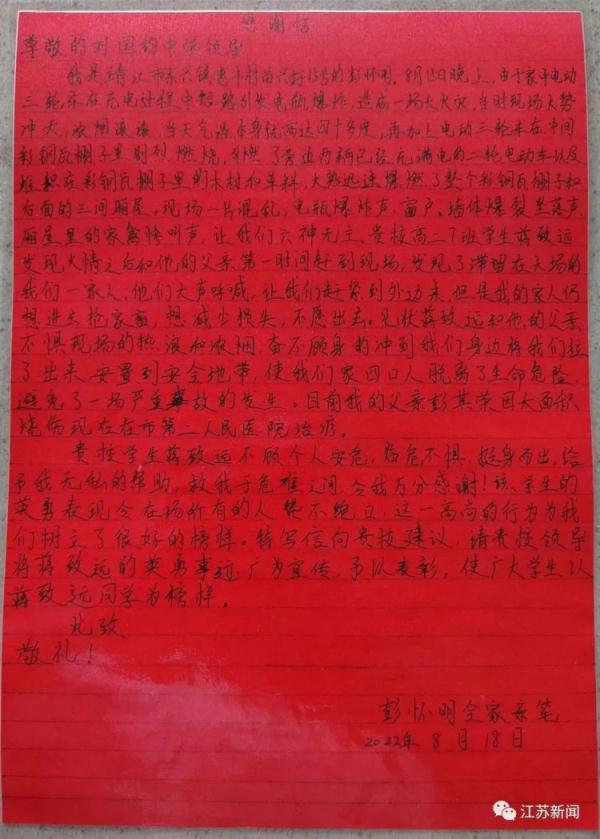 感谢信
尊敬的刘国钧中学领导
我是靖江市东兴镇惠丰村苗兴圩15号的彭怀明。8月15日晚上,由于家中电动
三轮车在充电过程中短路引发电瓶爆炸,造成一场大火灾,当时现场火势
冲天,浓烟滚滚,当天气温本身就高达四十多度,再加上电动三轮车在中间
彩钢瓦棚子里剧烈燃烧,引燃了旁边两辆已经充满电的二轮电动车以及
堆积在彩钢瓦棚子里的木材和草料,大火迅速爆燃了整个彩钢瓦棚子和
后面的三间厢屋。现场一片混乱,电瓶爆炸声,窗户、墙体爆裂坠落声
厢屋里的家禽惨叫声,让我们六神无主。贵校高二7班学生蒋致远
发现火情之后和他的父亲第一时间赶到现场,发现了滞留在火场的
我们一家人,他们大声呼喊,让我们赶紧到外边来,但是我的家人仍
想进去抢家畜,想减少损失,不愿出去。见状蒋致远和他的父亲
不惧现场的热浪和浓烟,奋不顾身的冲到我们身边将我们拉
了出来安置到安全地带,使我们家四口人脱离了生命危险,
避免了一场严重事故的发生。目前我的父亲彭其荣因大面积
烧伤现在在市第二人民医院治疗。
贵校学生蒋致远不顾个人安危,临危不惧,挺身而出,给
予我无私的帮助,救我于危难之间,令我万分感谢!该学生的
英勇表现令在场所有的人赞不绝口,这一高尚的行为为我
们树立了很好的榜样。特写信向贵校建议,请贵校领导
将蒋致远的英勇事迹广为宣传,予以表彰,使广大学生以
蒋致远同学为榜样。
此致
敬礼!
彭怀明全家亲笔
2022年8月18日
江苏新闻